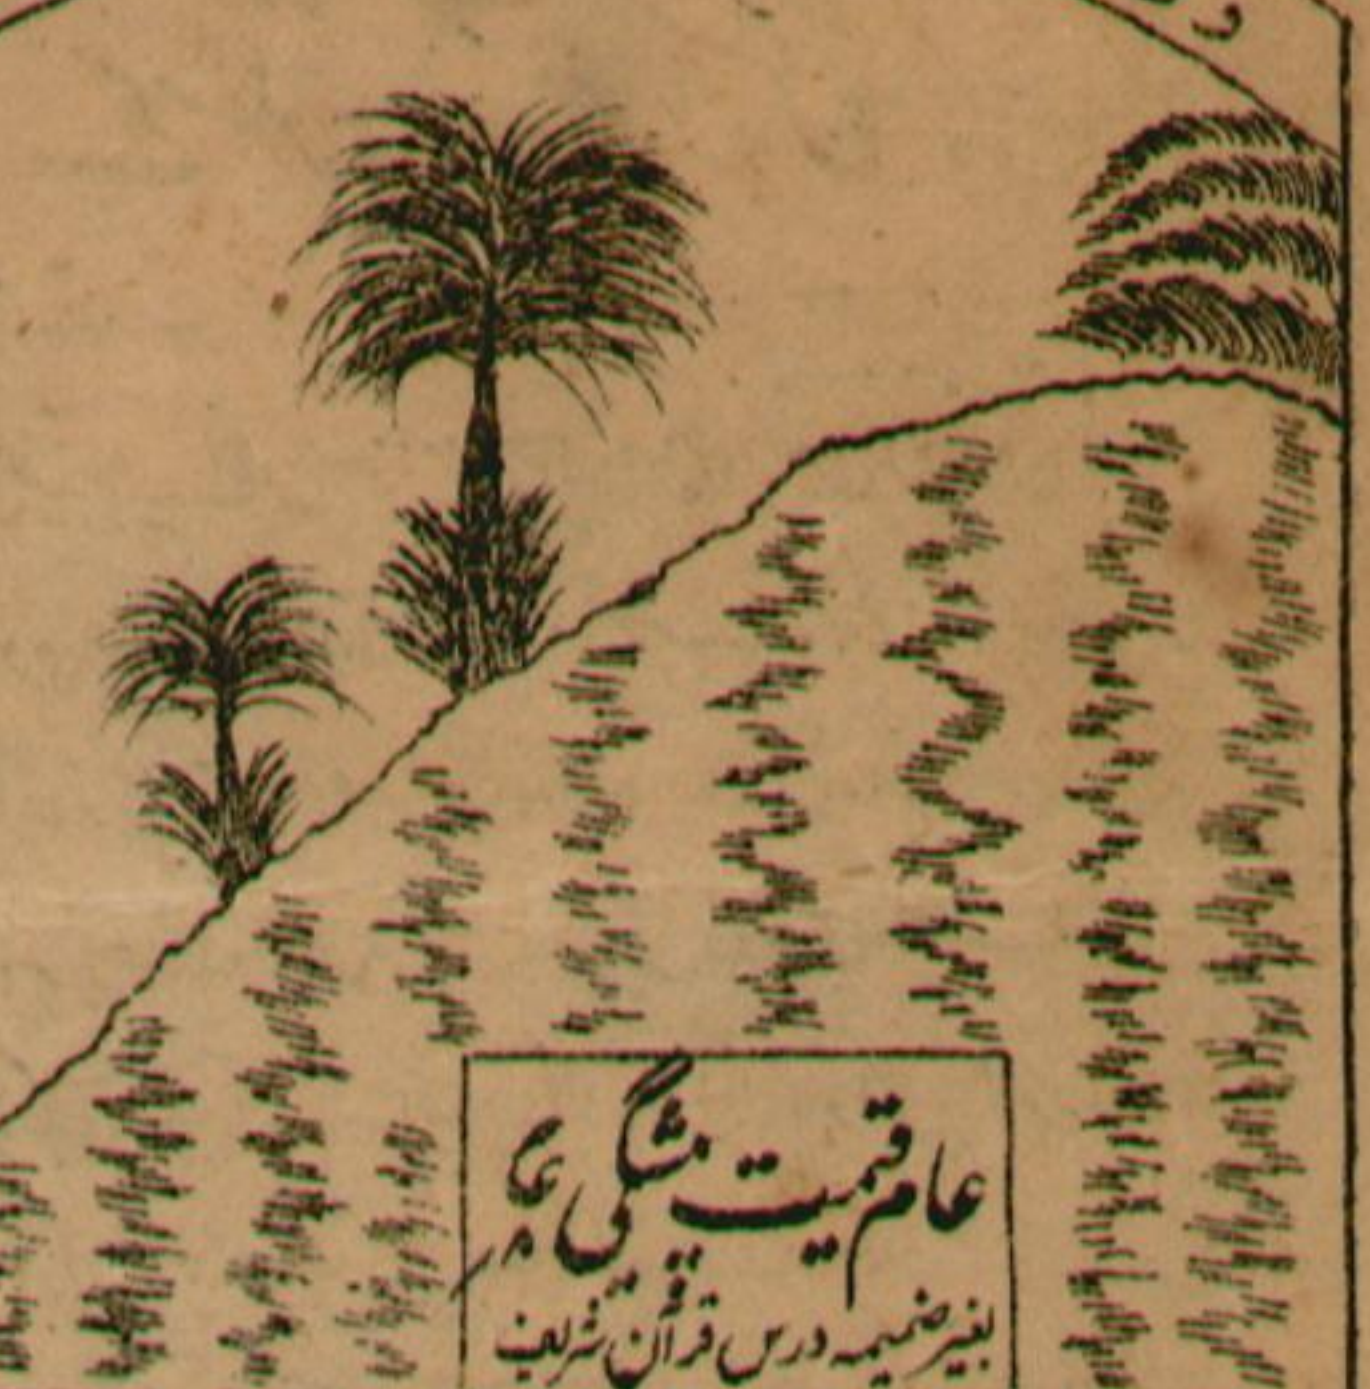 عام قیمت پیشگی
بغیر ضمیمہ درس قرآن شریف